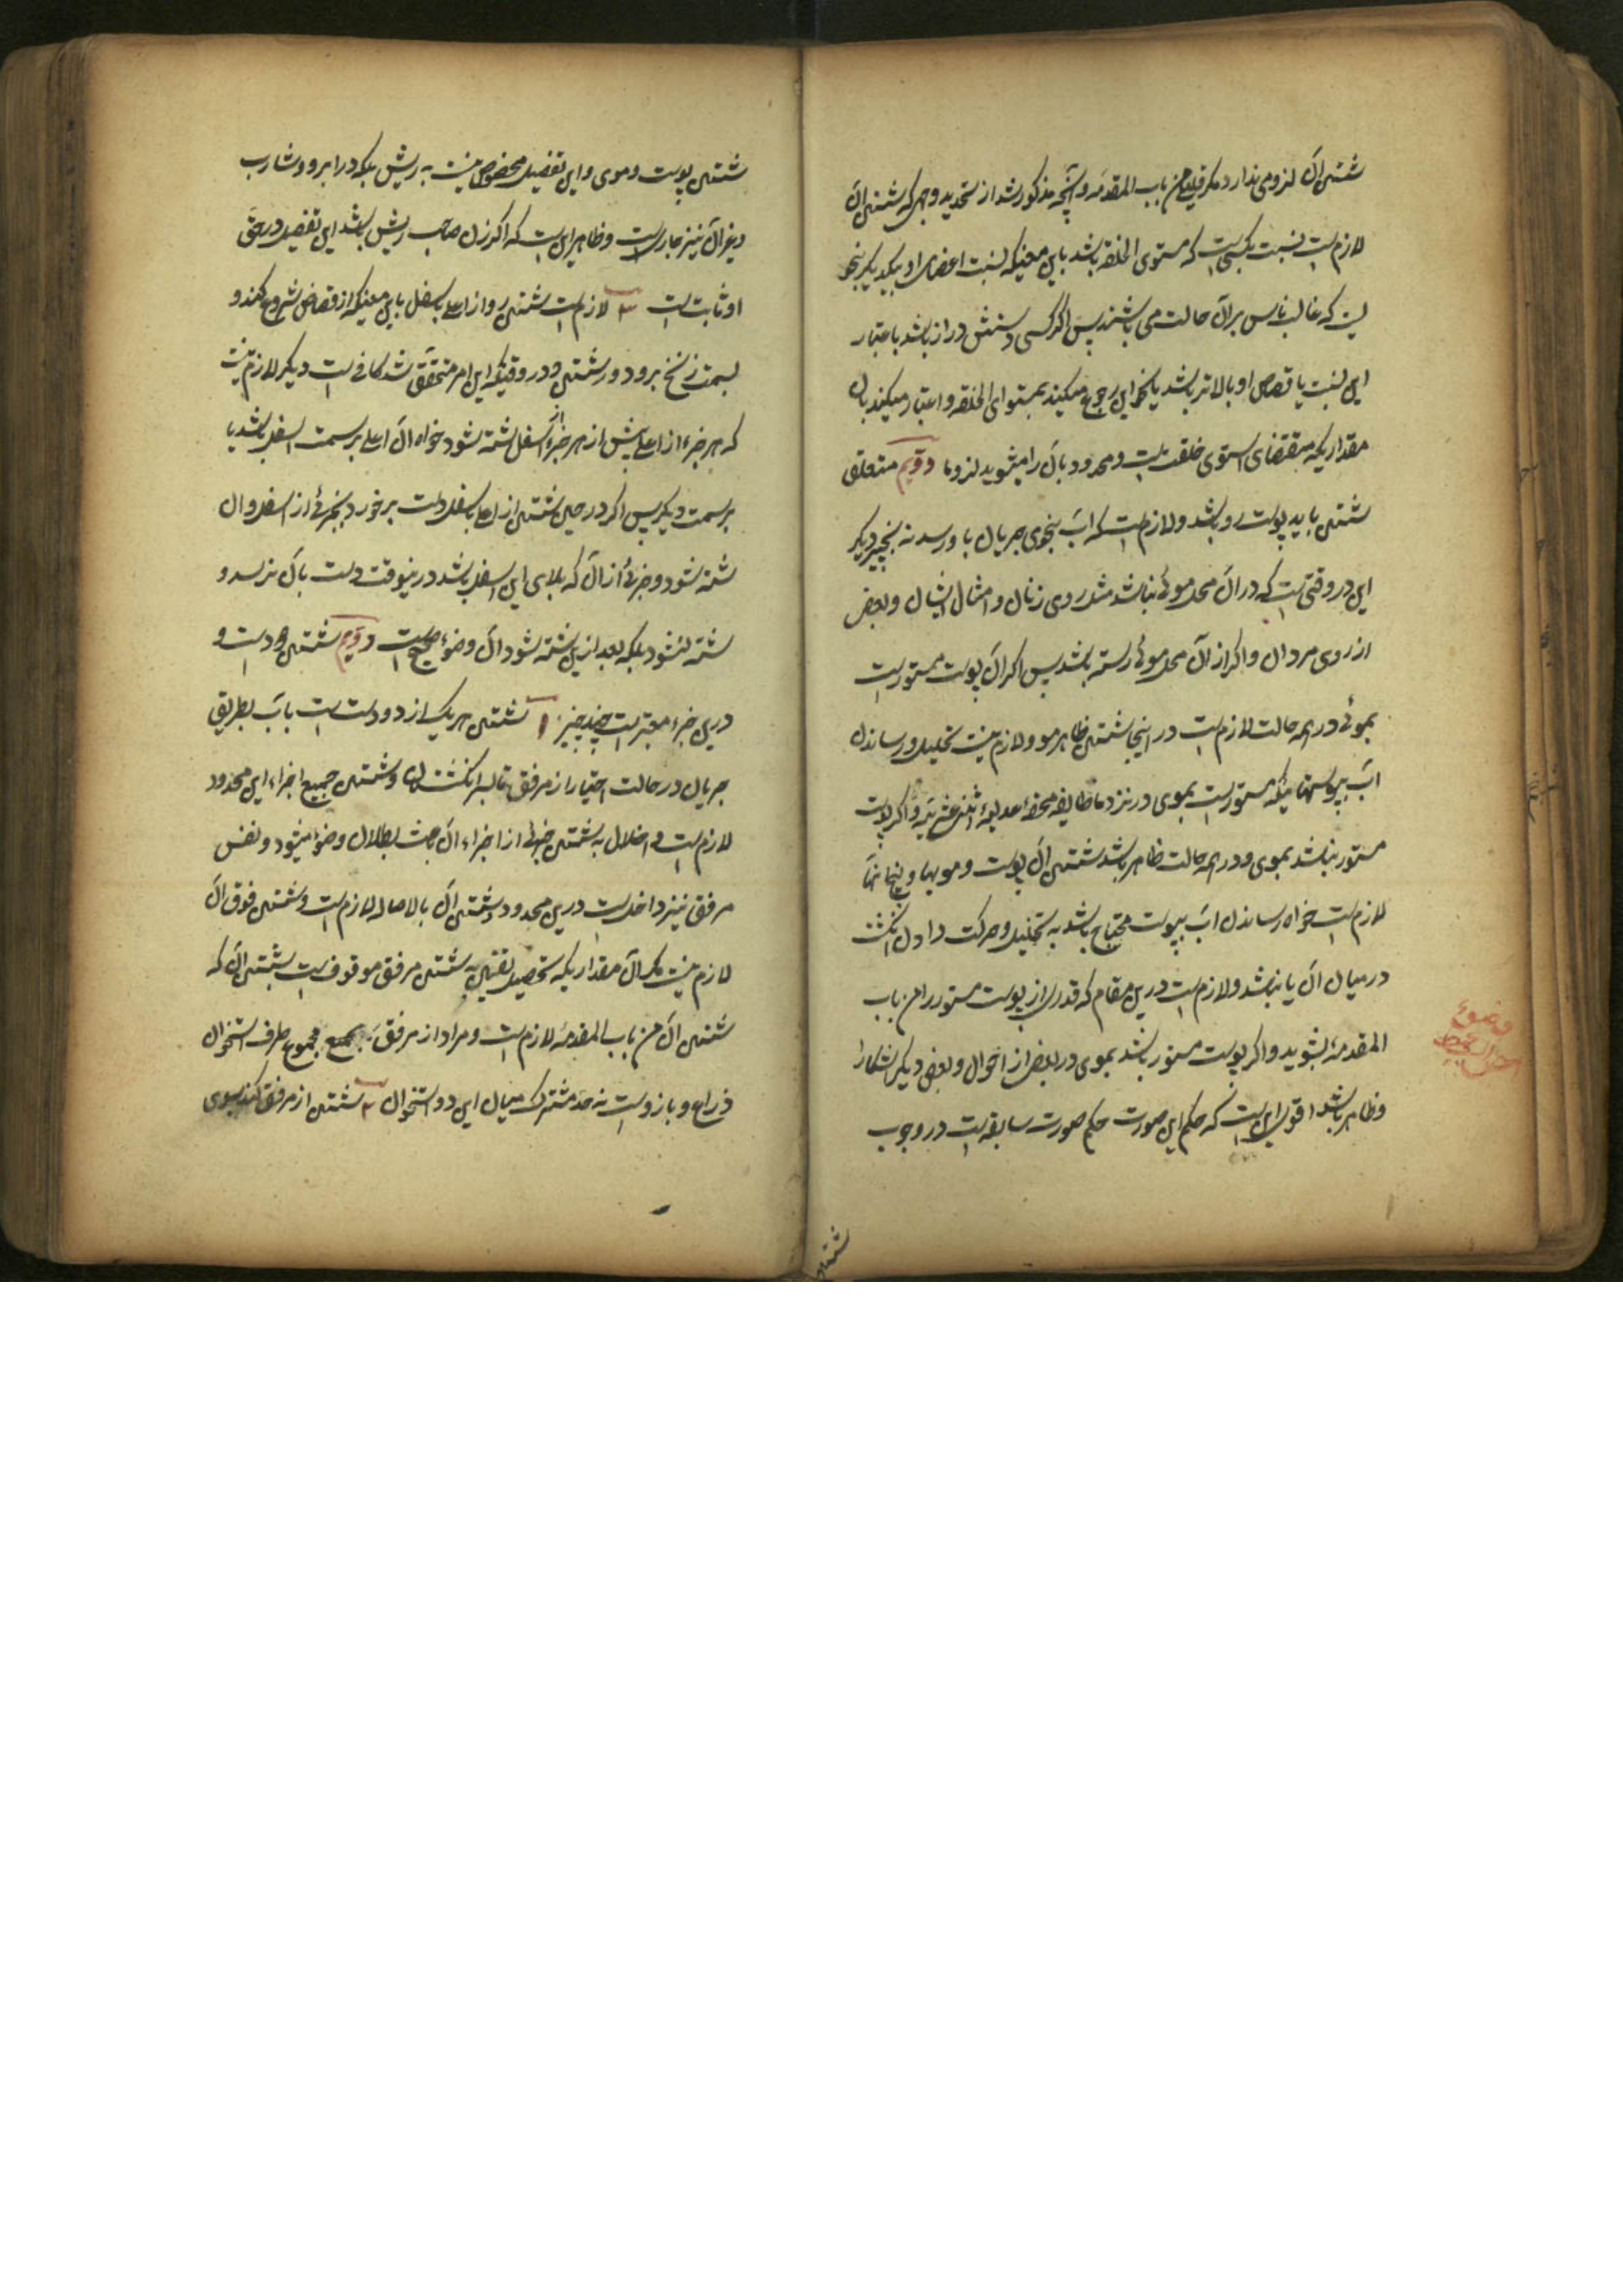 شستن آن لزومی ندارد مگر قلیلی من باب المقدمه و آنچه مذکور شد از تحدید وجهی که شستن آن
لازمست نسبت بکسی است که مستوی الخلقه باشد باین معنی که نسبت اعضای او بیکدیگر بنحو
است که غالب ناس بر آن حالت می باشند پس اگر کسی دستش دراز باشد باعتبار
این نسبت یا قصاص او بالاتر باشد یا نحو این رجوع میکند بمستوی الخلقه و اعتبار میکند بآن
مقداریکه مقتضای استوی خلقت است و محدود بآن را میشوید لزوما دویم متعلق
شستن باید پوست رو باشد و لازم است که آب بنحوی جریان باو رسد نه بنحو دیگر
این در وقتی است که در آن محل موئی نباشد مثل روی زنان و امثال ایشان و بعض
از روی مردان و اگر از آن محل موئی رسته باشد پس اگر آن پوست مستور است
بموئی در همه حالت لازم است در اینجا شستن ظاهر مو و لازم نیست تخلیل و رساندن
آب بپوستهائیکه مستور است بموی در نزد ما طایفه محقه عدلیه اثنی عشریه و اگر پوست
مستور نباشد بموی و در همه حالت ظاهر باشد شستن آن پوست و مویها و بیخ آنها
لازم است خواه رساندن آب بپوست محتاج باشد به تخلیل و حرکت دادن انگشت
در میان آن یا نباشد و لازم است درین مقام که قدری از پوست مستور را من باب
المقدمه بشوید و اگر پوست مستور باشد بموی در بعض از احوال و بعض دیگر آشکارا
و ظاهر باشد اقوی این است که حکم این صورت حکم صورت سابقه است در وجوب
وضوء
شستن
شستن پوست و موی و این تفصیل مخصوص نیست به ریش بلکه در ابرو و شارب
و غیر آن نیز جاریست و ظاهر این است که اگر زن صاحب ریش باشد این تفصیل در حق
او ثابت است ۳ لازم است شستن رو از اعلی باسفل باین معنی که از قصاص شروع کند و
بسمت زنخ برود در شستن و در وقتیکه این امر متحقق شد کافی است دیگر لازم نیست
که هر جزء از اعلی پیش از هر جزء اسفل شسته شود خواه آن اعلی بر سمت اسفل باشد یا
بر سمت دیگر پس اگر در حین شستن از اعلی باسفل دست برخورد بجزئی از اسفل و آن
شسته شود و جزئی از آن که بالای این اسفل باشد در ینوقت دست بآن نرسد و
شسته نشود بلکه بعد از این شسته شود آن وضوء صحیح است دویم شستن دو دست و
درین جزء معتبر است چند چیز ۱ شستن هر یک از دو دست است بآب بطریق
جریان در حالت اختیار از مرفق تا سر انگشتان و شستن جمیع اجزاء این محدود
لازم است و اخلال به شستن جزئی از اجزاء آن باعث بطلان وضوء میشود و نفس
مرفق نیز داخلست درین محدود و شستن آن بالاصاله لازم است و شستن فوق آن
لازم نیست مگر آن مقداریکه تحصیل یقین به شستن مرفق موقوف است بشستن آن که
شستن آن من باب المقدمه لازم است و مراد از مرفق مجموع طرف استخوان
ذراع و بازو است نه حد مشترک میان این دو استخوان ۲ شستن از مرفق کند بسوی